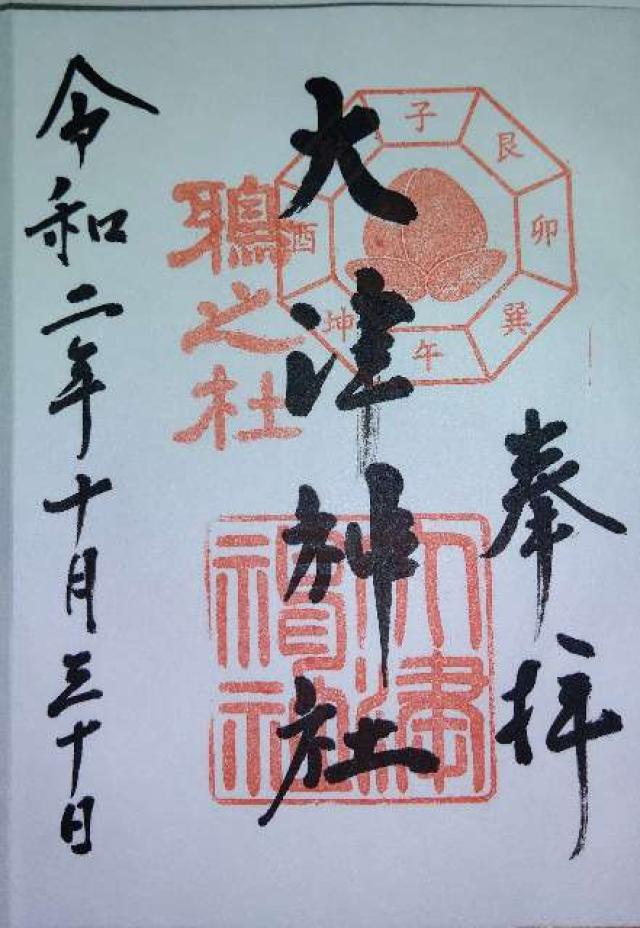 奉拝
大津神社
令和二年十月三十日
子
艮
卯
巽
午
坤
酉
鴨之社
大津
神社